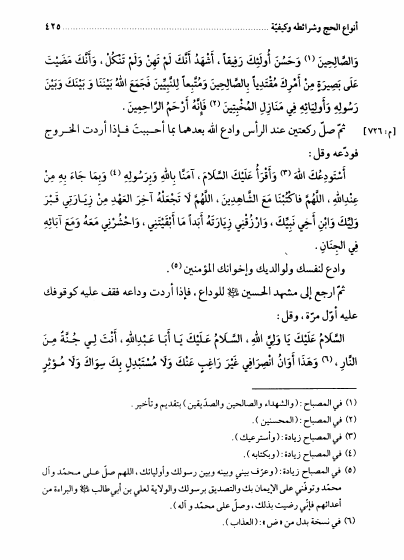 أنواع الحج وشرائطه وكيفيّة ٤٢٥
وَالصَّالِحِينَ (١) وَحَسُنَ أُولَٰئِكَ رَفِيقاً ، أَشْهَدُ أَنَّكَ لَمْ تَهِنْ وَلَمْ تَنْكُلْ ، وَأَنَّكَ مَضَيْتَ
عَلَى بَصِيرَةٍ مِنْ أَمْرِكَ مُقْتَدِياً بِالصَّالِحِينَ وَمُتَّبِعاً لِلنَّبِيِّينَ فَجَمَعَ اللهُ بَيْنَنَا وَبَيْنَكَ وَبَيْنَ
رَسُولِهِ وَأَوْلِيَائِهِ فِي مَنَازِلِ المُخْبِتِينَ (٢) فَإِنَّهُ أَرْحَمُ الرَّاحِمِينَ .
[م: ٧٢٦] ثمّ صلّ ركعتين عند الرأس وادع الله بعدهما بما أحببت فإذا أردت الخروج
فودّعه وقل :
أَسْتَوْدِعُكَ اللهَ (٣) وَأَقْرَأُ عَلَيْكَ السَّلَامَ ، آمَنَّا بِاللهِ وَبِرَسُولِهِ (٤) وَبِمَا جَاءَ بِهِ مِنْ
عِنْدِاللهِ ، اللَّهُمَّ فَاكْتُبْنَا مَعَ الشَّاهِدِينَ، اللَّهُمَّ لَا تَجْعَلْهُ آخِرَ العَهْدِ مِنْ زِيَارَتِي قَبْرَ
وَلِيِّكَ وَابْنِ أَخِي نَبِيِّكَ، وَارْزُقْنِي زِيَارَتَهُ أَبَداً مَا أَبْقَيْتَنِي، وَاحْشُرْنِي مَعَهُ وَمَعَ آبَائِهِ
فِي الجِنَانِ.
وادع لنفسك ولوالديك وإخوانك المؤمنين (٥).
ثمّ ارجع إلى مشهد الحسين ﵇ للوداع ، فإذا أردت وداعه فقف عليه كوقوفك
عليه أوّل مرّة ، وقل :
السَّلَامُ عَلَيْكَ يَا وَلِيَّ اللهِ ، السَّلَامُ عَلَيْكَ يَا أَبَا عَبْدِاللهِ ، أَنْتَ لِي جُنَّةٌ مِنَ
النَّارِ ، (٦) وَهَذَا أَوَانُ انْصِرَافِي غَيْرَ رَاغِبٍ عَنْكَ وَلَا مُسْتَبْدِلٍ بِكَ سِوَاكَ وَلَا مُؤْثِرٍ
(١) في المصباح : (والشهداء والصالحين والصدّيقين) بتقديم وتأخير.
(٢) في المصباح : (المحسنين).
(٣) في المصباح زيادة : (وأسترعيك).
(٤) في المصباح زيادة : (وبكتابه).
(٥) في المصباح زيادة: (وعرّف بيني وبينه وبين رسولك وأوليائك ، اللهم صلّ على محمّد وآل
محمّد وتوفّني على الإيمان بك والتصديق برسولك والولاية لعلي بن أبي طالب ﵇ والبراءة من
أعدائهم فإنّي رضيت بذلك ، وصلّ على محمّد و آله).
(٦) في نسخة بدل من «ض» : (العذاب).